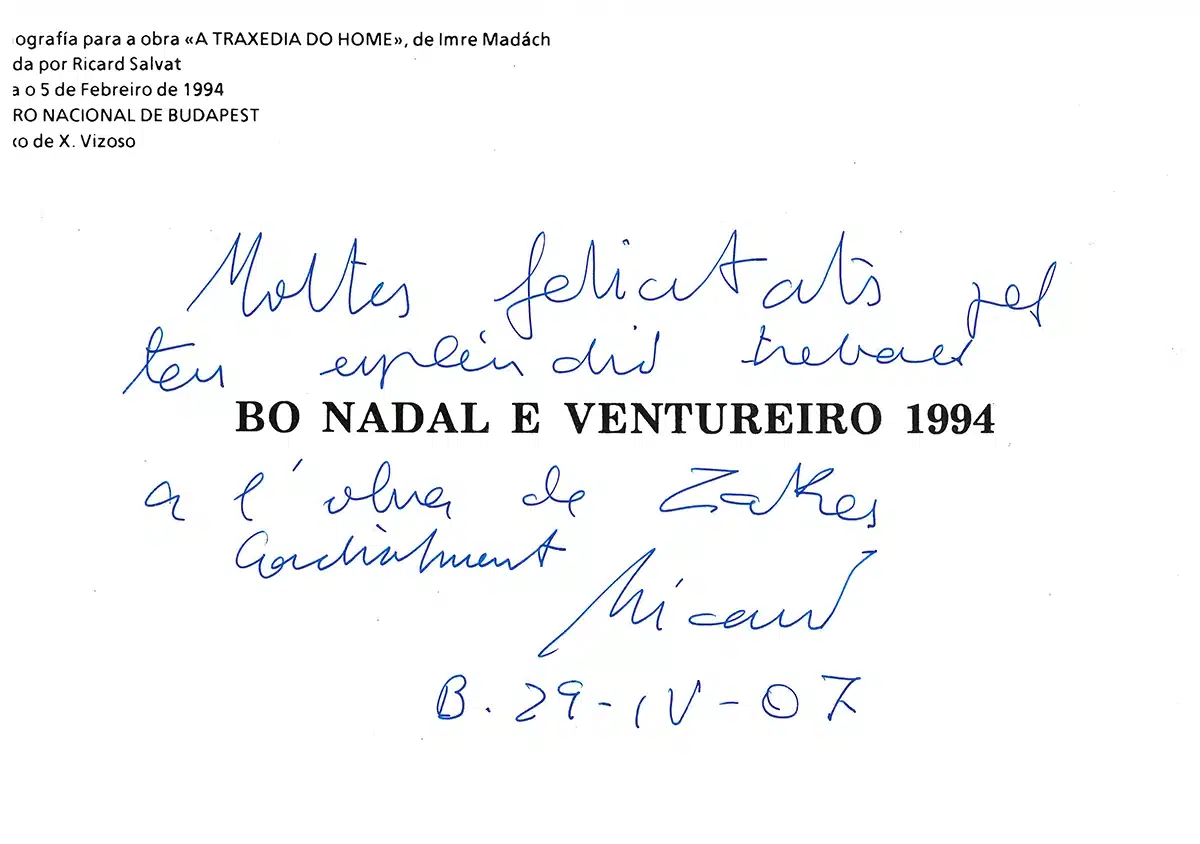 ografía para a obra «A TRAXEDIA DO HOME», de Imre Madách
da por Ricard Salvat
a o 5 de Febreiro de 1994
RO NACIONAL DE BUDAPEST
xo de X. Vizoso
Moltes felicitats pel
teu esplèndid treball
BO NADAL E VENTUREIRO 1994
a l'obra de Zakes
Cordialment
Ricard
B. 29-IV-07